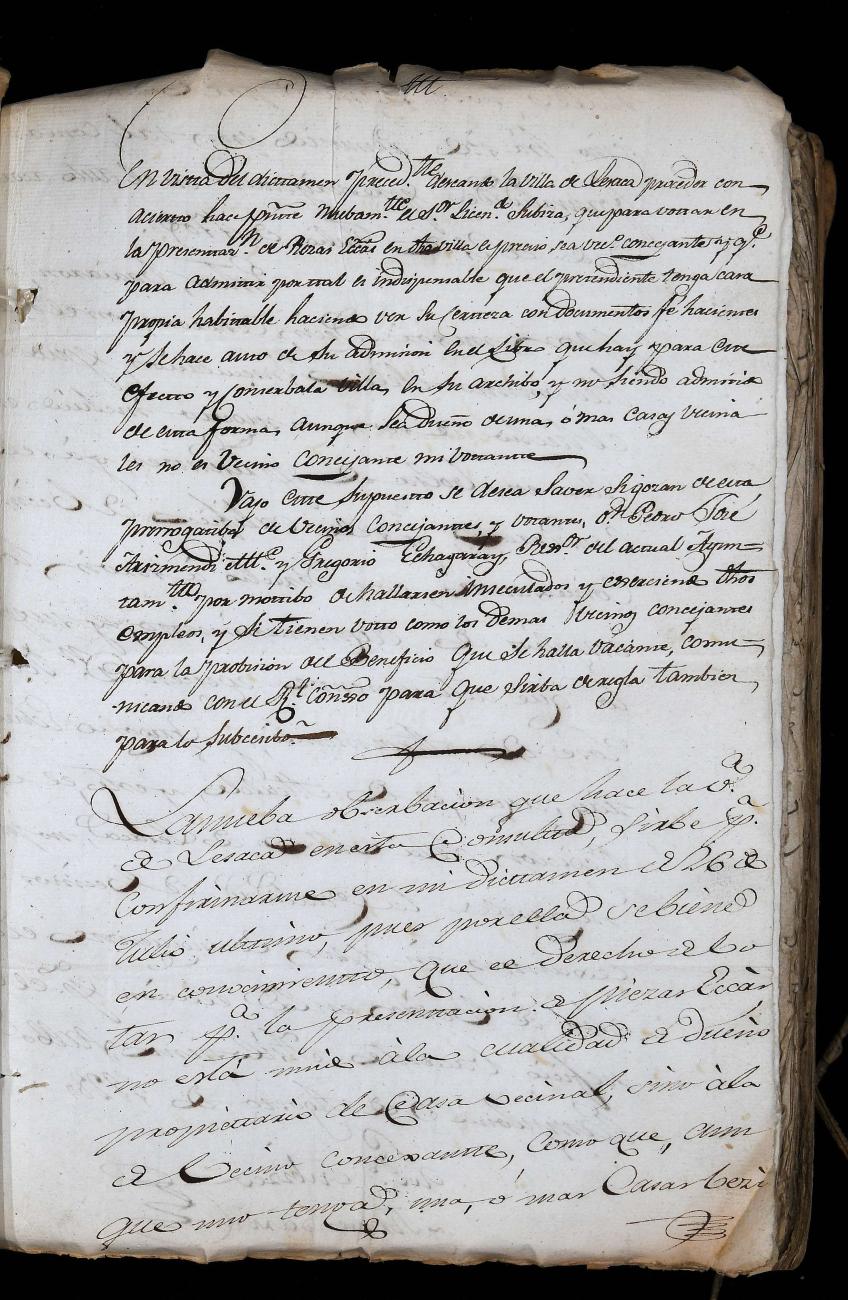 En vista del dictamen preced.te deseando la villa de Lesaca proceder con
acierto hace pñte nuebam.te el S.or Licen.do Subiza, que para votar en
la presentaz.n de Piezas Eccâs en dha villa es preciso sea vec.o concejante y q.e
para admitir por tal es indispensable que el pretendiente tenga casa
propia habitable haciendo ver su certeza con documentos fe hacientes
y se hace auto de su admision en el Libro que hay para este
efecto y conserba la villa en su archibo, y no siendo admitido
de esta forma, aunque sea dueño de unas, ó mas casas vecina
les no es vecino concejante ni votante
Vajo este supuesto se desea saver si gozan de esta
prerrogatiba de vecinos concejantes, y votantes, D.n Pedro José
Arizmendi Alc.e y Gregorio Echagaray, Rex.or del actual Ayun=
tam.to por mottibo de hallarsen inseculados y exerciendo dhos
empleos, y si tienen votto como los demas vecinos concejantes
para la probision del Beneficio que se halla vacante, comu=
nicando con el R.l Conso para que sirba de regla tambien
para lo subcesibo.
La nueba obserbacion que hace la v.a
de Lesaca en esta Consulta, sirbe p.a
confirmarme en mi dictamen de 26 de
Julio ultimo, pues por ella se biene
en conocimiento, que el derecho de bo
tar p.a la presentacion de piezas Eccâs
no está unido à la cualidad de dueño
propietario de Casa vecinal, sino à la
de Vecino concexante, como que, aun
que uno tenga, una, o mas Casas bezi